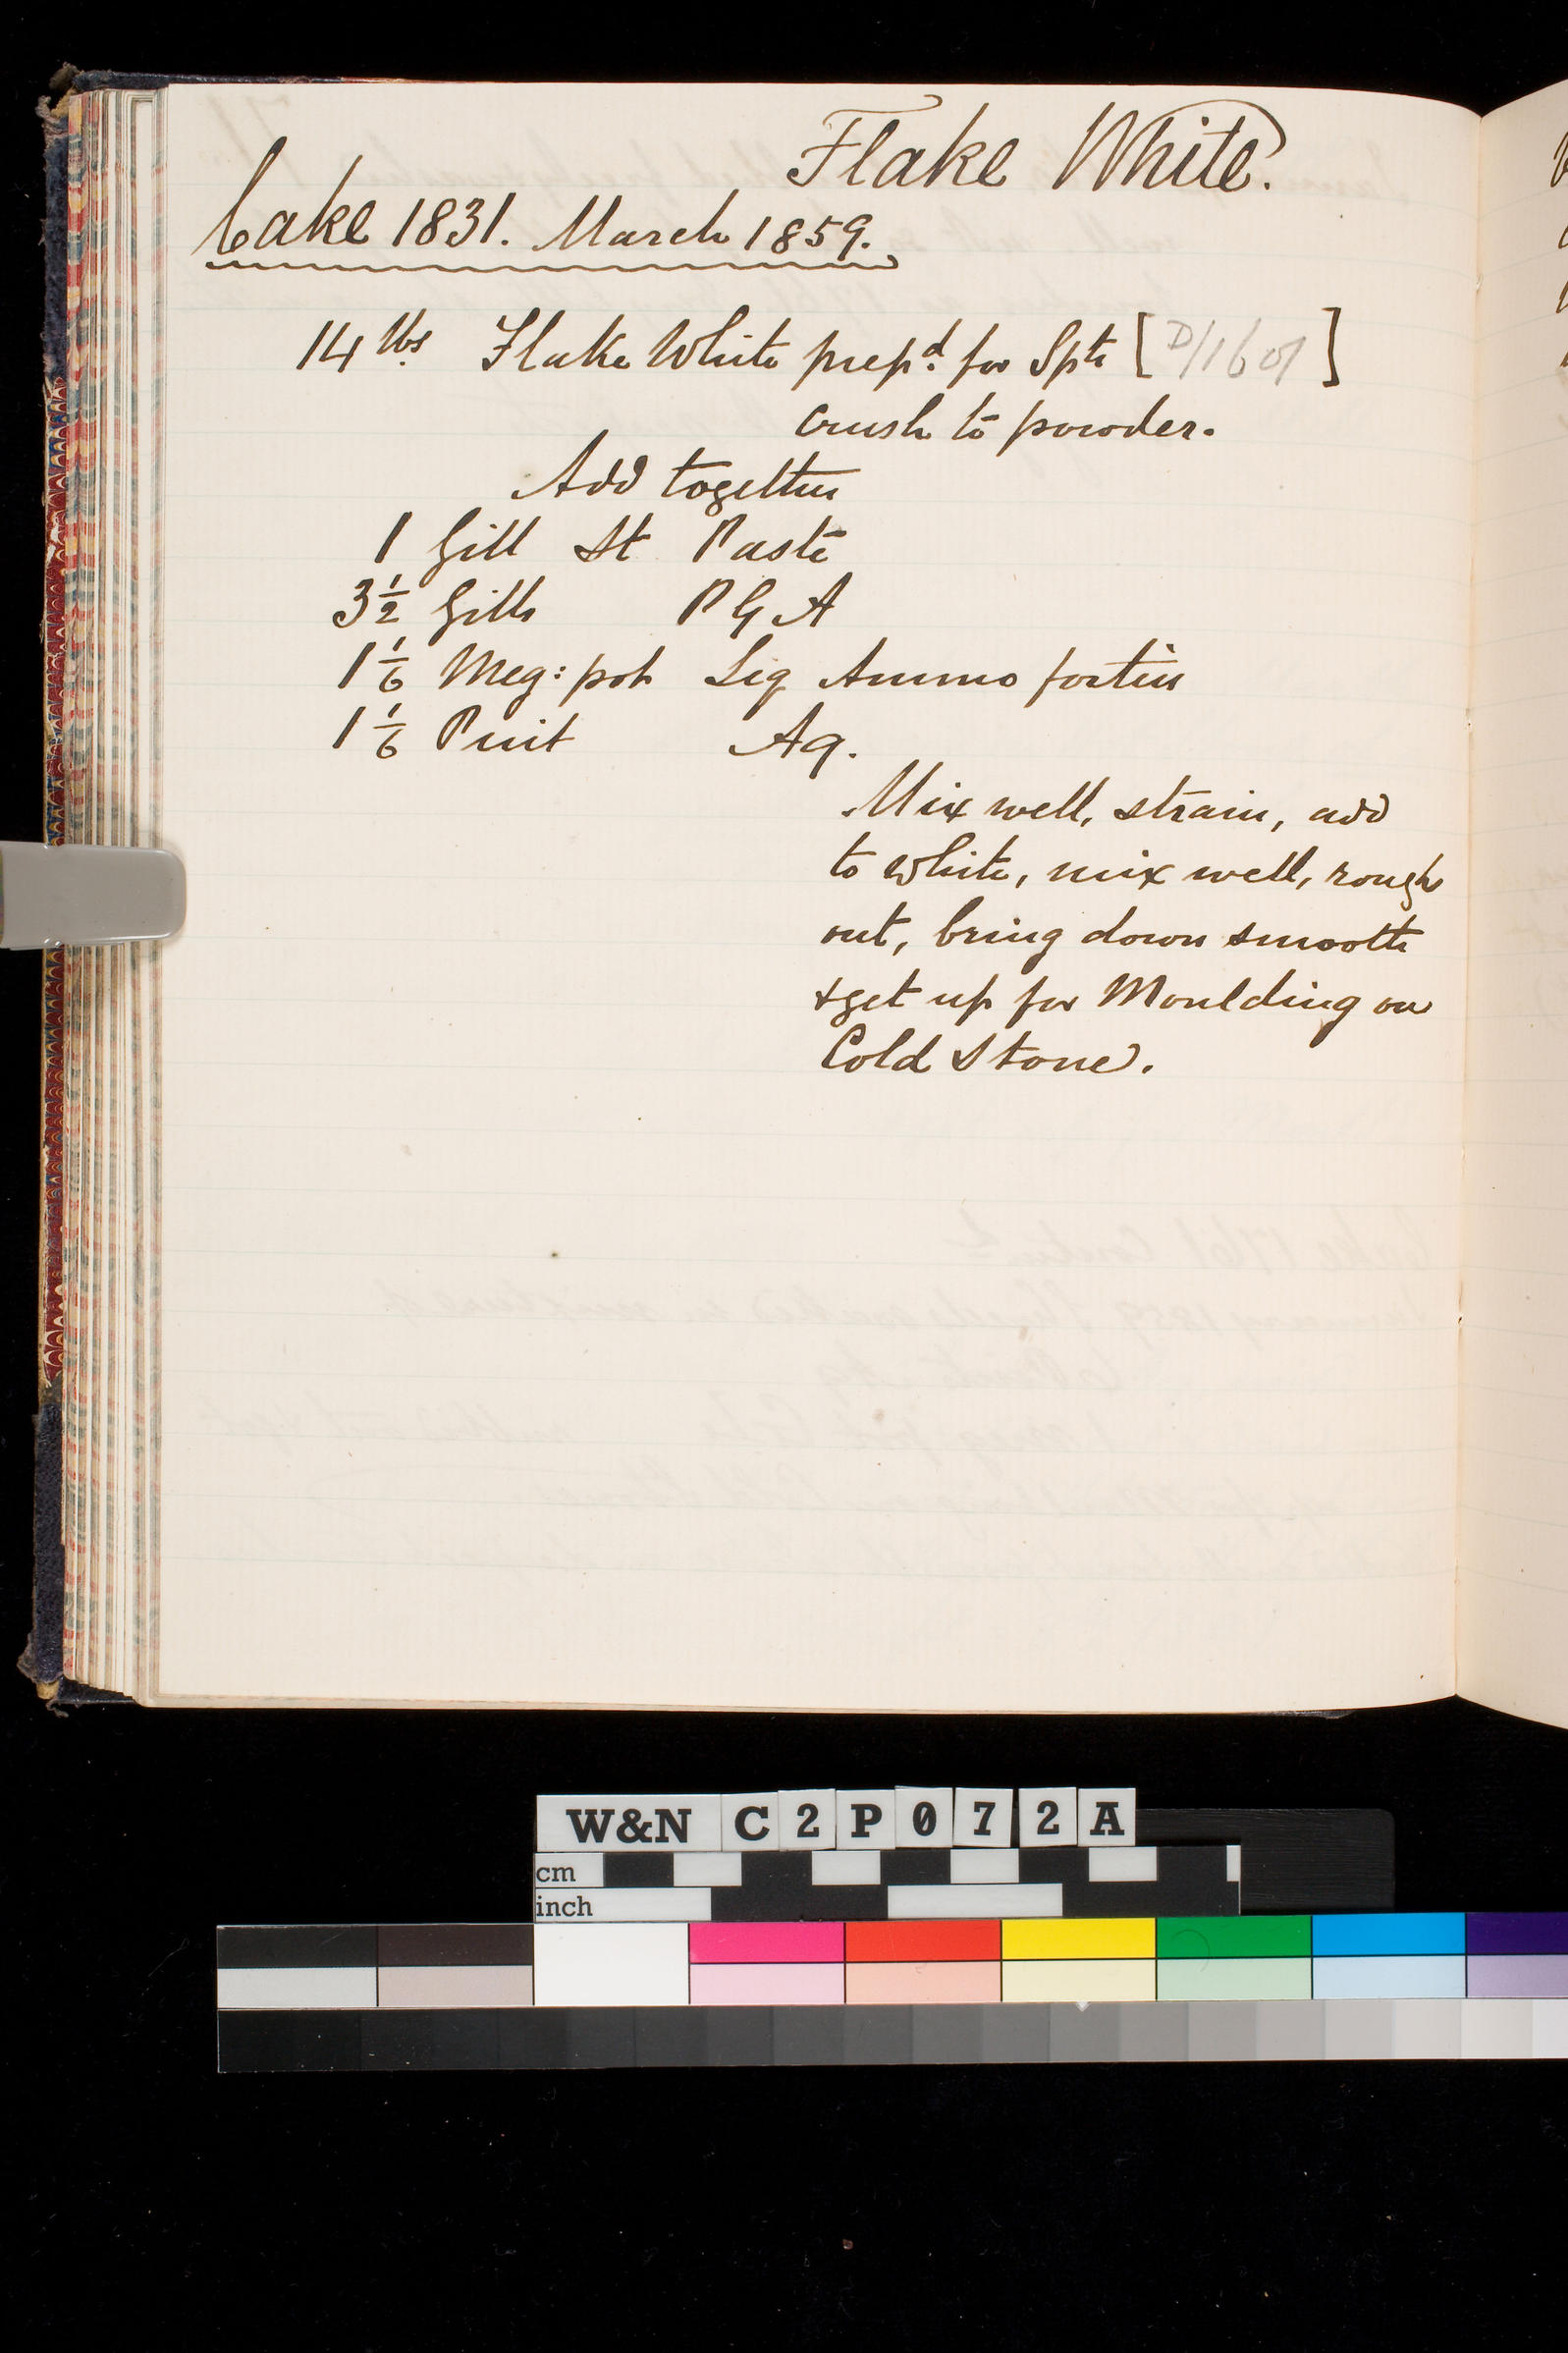 Flake White.
Cake 1831. March 1859.
14 lbs Flake White prepd. for Spts [D/1601]
crush to powder.
Add together
1 Gill St Paste
3 1/2 Gills P G A
1 1/6 Meg: pot Liq Ammo fortis
1 1/6 Pint Aq.
Mix well, strain, add
to White, mix well, rough
out, bring down smooth
& get up for Moulding on
Cold Stone.
W&N C2P072A
cm
inch